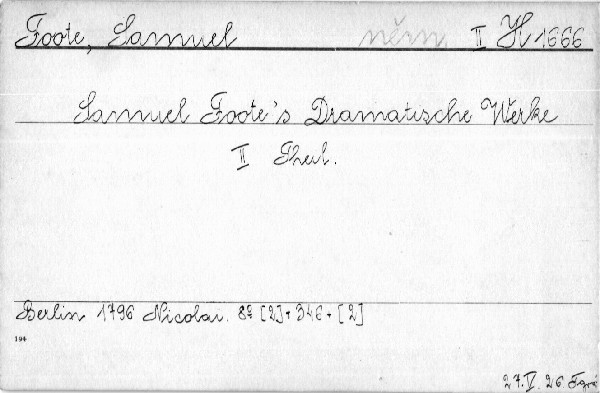 Foote, Samuel něm. II H 1666
Samuel Foote's Dramatische Werke
II Theil.
Berlin 1796 Nicolai. 8º [2] + 346 + [2]
194
27.V.26.